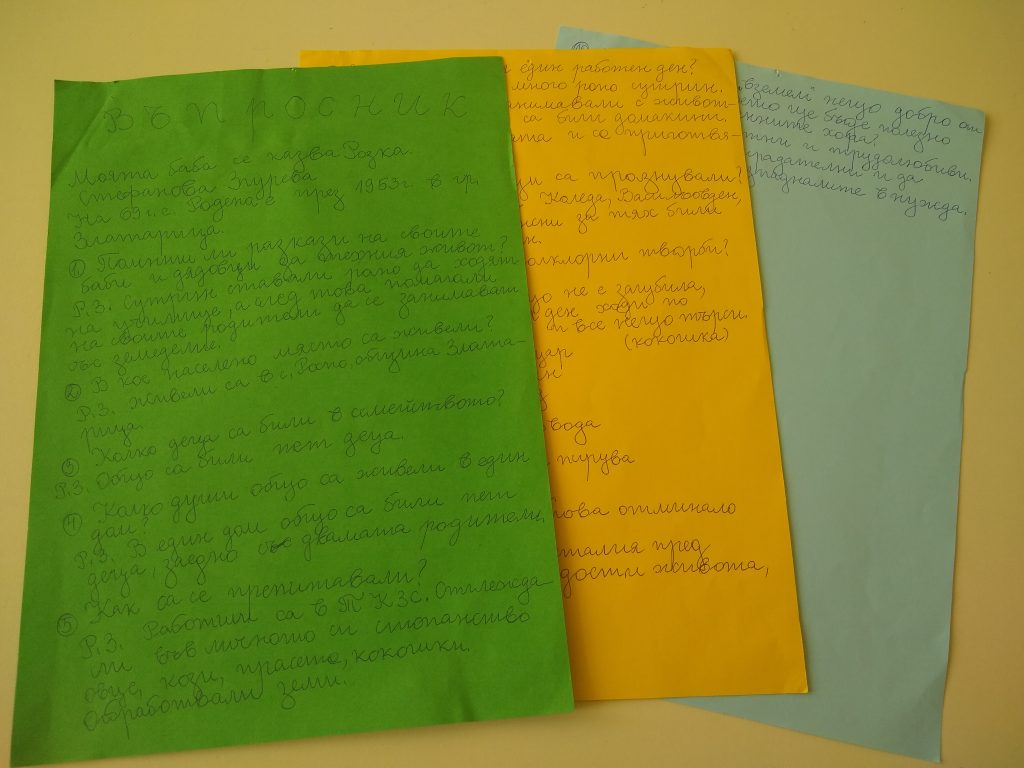 ВЪПРОСНИК
Моята баба се казва Розка
Стефанова Згурева
На 69 г. е. Родена е през 1953 г. в гр.
Златарица.
① Помниш ли разкази на своите
баби и дядовци за техния живот?
Р.З. Сутрин ставали рано да ходят
на училище, а след това помагали
на своите родители да се занимават
със земеделие.
② В кое населено място са живели?
Р.З. Живели са в с. Росно, община Злата-
рица.
③ Колко деца са били в семейството?
Р.З. Общо са били пет деца.
④ Колко души общо са живели в един
дом?
Р.З. В един дом общо са били пет
деца, заедно със двамата родители.
⑤ Как са се препитавали?
Р.З. Работили са в ТКЗС. Отглежда-
ли във личното си стопанство
овце, кози, прасета, кокошки.
Обработвали земи.
един работен ден?
много рано сутрин.
занимавали с живот-
са били домакини.
и са приготвя-
са празнували?
Коледа, Васильовден,
за тях били
фолклорни творби?
не е загубила,
ден ходи по
и все нещо търси.
(кокошка)
вода
отминало
пред
живота,
"вземем" нещо добро от
ще бъде полезно
хора?
и трудолюбиви.
и да
в нужда.